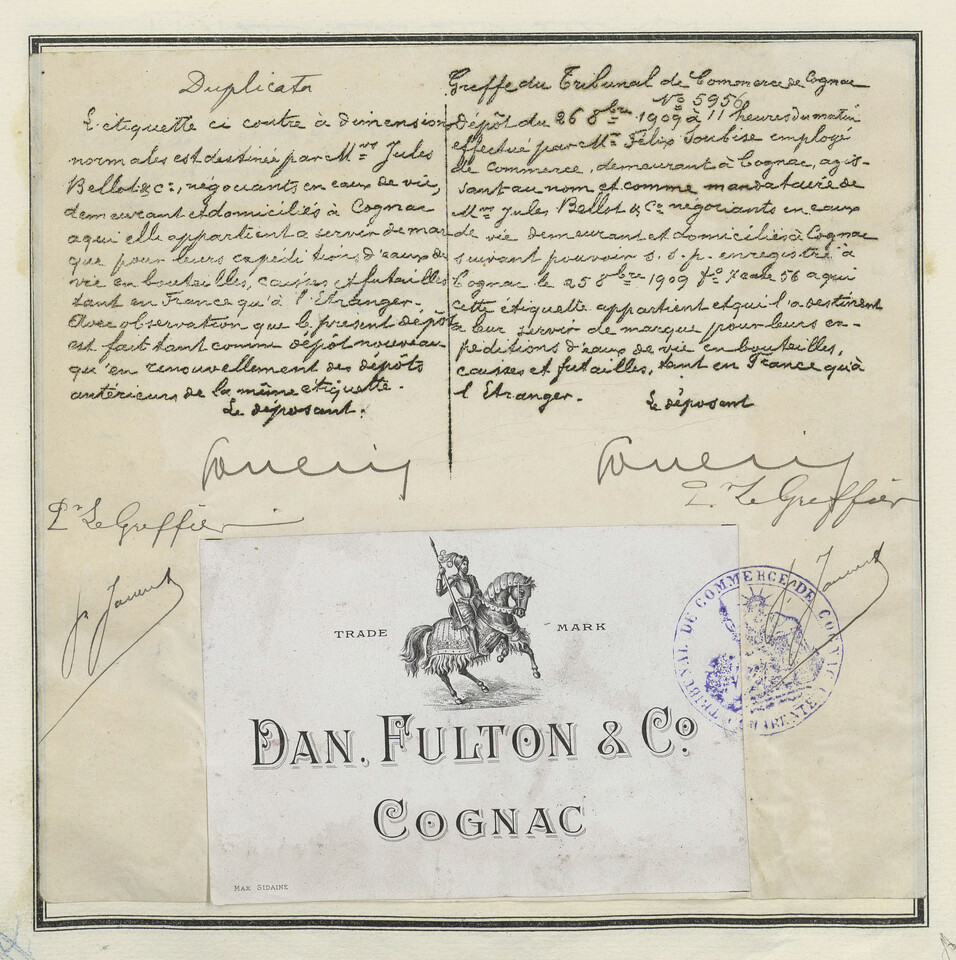 Duplicata
L'étiquette ci contre à dimensions
normales est destinée par Mrs Jules
Bellot & Co, négociants en eaux de vie,
demeurant et domiciliés à Cognac
a qui elle appartient a servir de mar-
que pour leurs expéditions d'eaux de
vie en bouteilles, caisses et futailles
tant en France qu'à l'Etranger.
Avec observation que le présent dépôt
est fait tant comme dépôt nouveau
qu'en renouvellement des dépôts
antérieurs de la même étiquette.
Le déposant.
Pr Le Greffier
Greffe du Tribunal de Commerce de Cognac
No 5956
Dépôt du 26 8bre 1909 à 11 heures du matin
effectué par Mr Félix Soubise employé
de commerce, demeurant à Cognac, agis-
sant au nom et comme mandataire de
Mrs Jules Bellot & Co négociants en eaux
de vie demeurant et domiciliés à Cognac
suivant pouvoir s.s.p. enregistré à
Cognac le 25 8bre 1909 fo 7 case 56 a qui
cette étiquette appartient et qui l'a destinent
a leur servir de marque pour leurs ex-
péditions d'eaux de vie en bouteilles,
caisses et futailles, tant en France qu'à
l'Etranger.
Le déposant
Pr Le Greffier
TRIBUNAL DE COMMERCE DE COGNAC (CHARENTE)
TRADE MARK
DAN. FULTON & Co
COGNAC
MAX SIDAINE